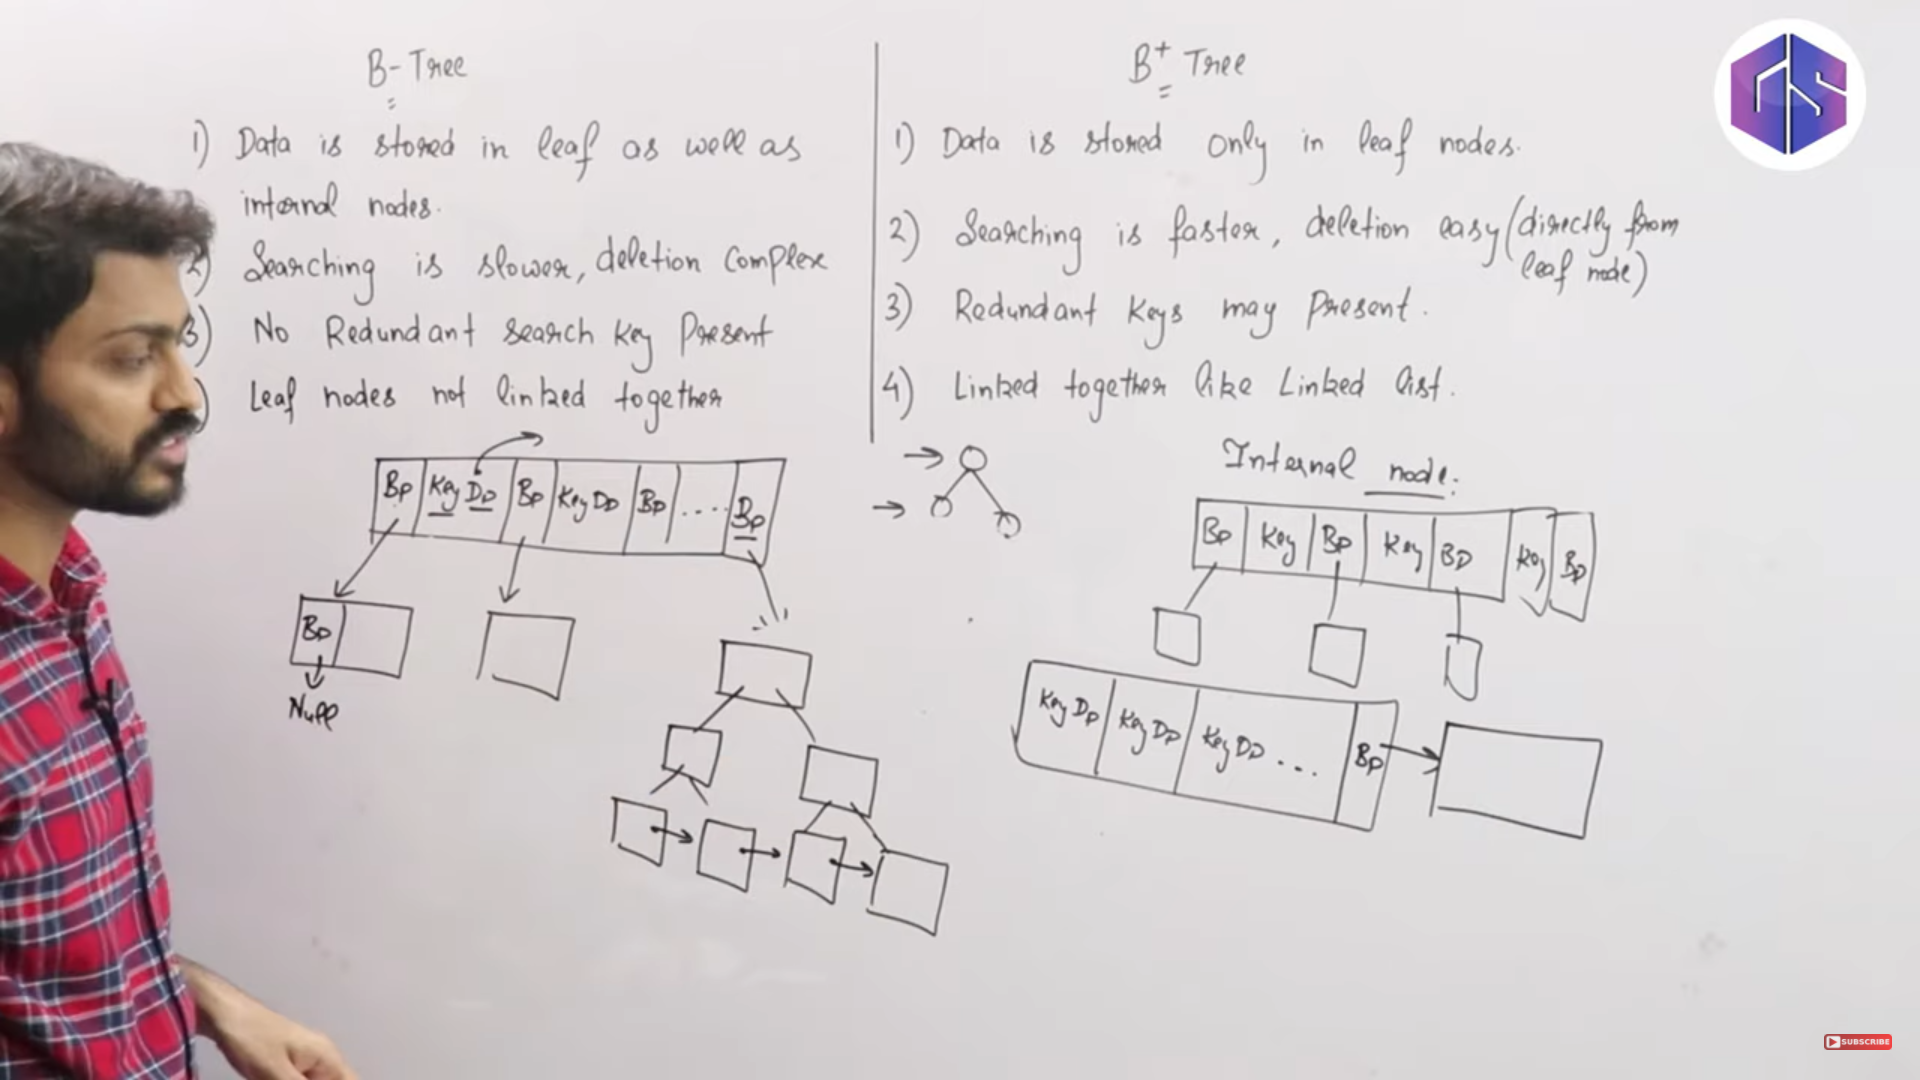 B- Tree
1) Data is stored in leaf as well as
internal nodes.
2) Searching is slower, deletion complex
3) No Redundant search key Present
) Leaf nodes not linked together
Bp Key Dp Bp Key Dp Bp .... Bp
Bp
Null
B+ Tree
1) Data is stored only in leaf nodes.
2) Searching is faster, deletion easy (directly from
leaf node)
3) Redundant Keys may Present.
4) Linked together like Linked list.
Internal node:
Bp Key Bp Key Bp Key Bp
Key Dp Key Dp Key Dp ... Bp
SUBSCRIBE